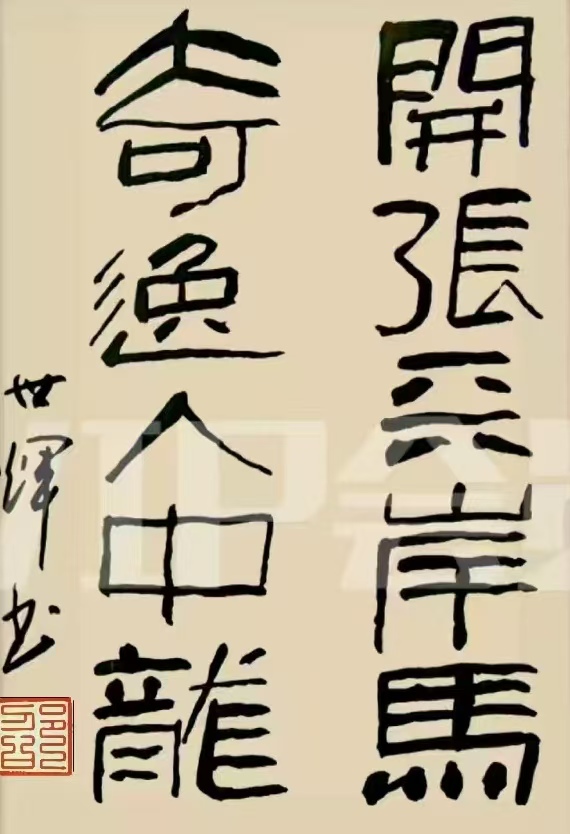 開張天岸馬
奇逸人中龍
世煇书